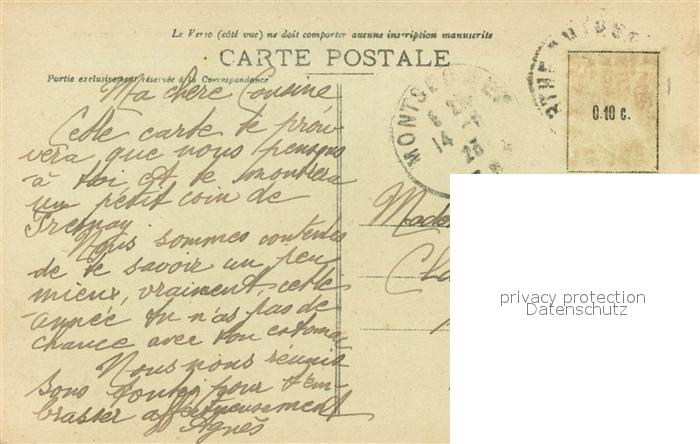 Le Verso (côté vue) ne doit comporter aucune inscription manuscrite
CARTE POSTALE
Partie exclusivement réservée à la Correspondance
Ma chère Cousine
Cette carte te prou-
vera que nous pensons
à toi et te montrera
un petit coin de
Fresnay.
Nous sommes contentes
de te savoir un peu
mieux, vraiment, cette
année tu n'as pas de
chance avec ton estomac
Nous nous réunis
sons toutes pour t'em-
brasser affectueusement
Agnès
14
23
0.10 c.
Made
privacy protection
Datenschutz